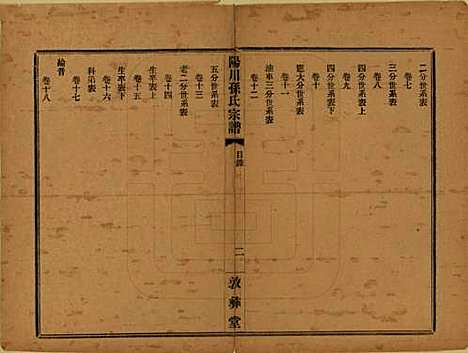 二分世系表
卷八
三分世系表
卷九
四分世系表上
卷十
四分世系表下
卷十一
大分世系表
卷十二
油車三分世系表
陽川孫氏宗譜
目錄
二
敦彝堂
卷十三
五分世系表
卷十四
老二分世系表
卷十五
生卒表上
卷十六
生卒表下
卷十七
科第表
卷十八
綸音